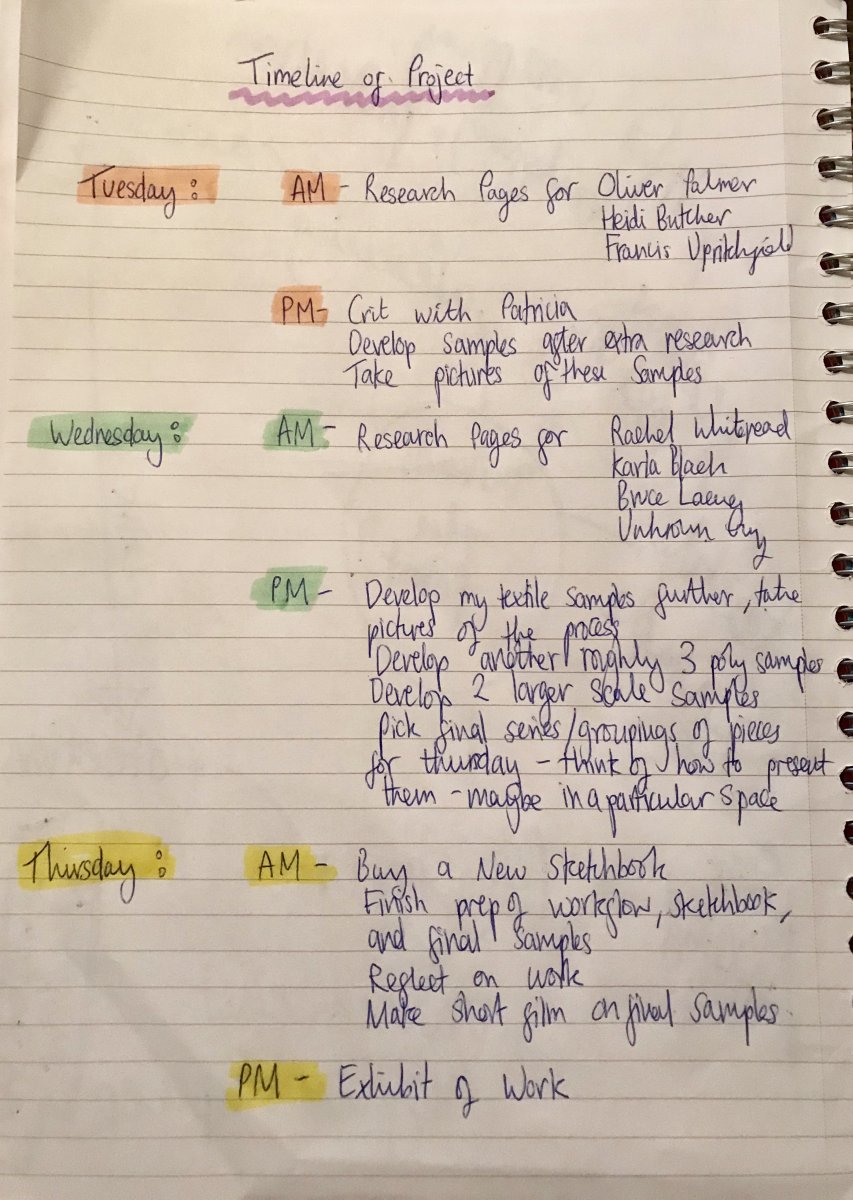 Timeline of Project
Tuesday: AM - Research Pages for Oliver Palmer
Heidi Butcher
Francis Upritchfield
PM- Crit with Patricia
Develop samples after extra research
Take pictures of these Samples
Wednesday: AM- Research Pages for Rachel Whiteread
Karla Black
Bruce
Unknown Guy
PM - Develop my textile samples further, take
pictures of the process
Develop another roughly 3 poly samples
Develop 2 larger scale samples
Pick final series/groupings of pieces
for thursday - think of how to present
them - maybe in a particular space
Thursday: AM - Buy a New Sketchbook
Finish prep of workflow, sketchbook,
and final samples
Reflect on work
Make short film on final samples.
PM - Exhibit of Work